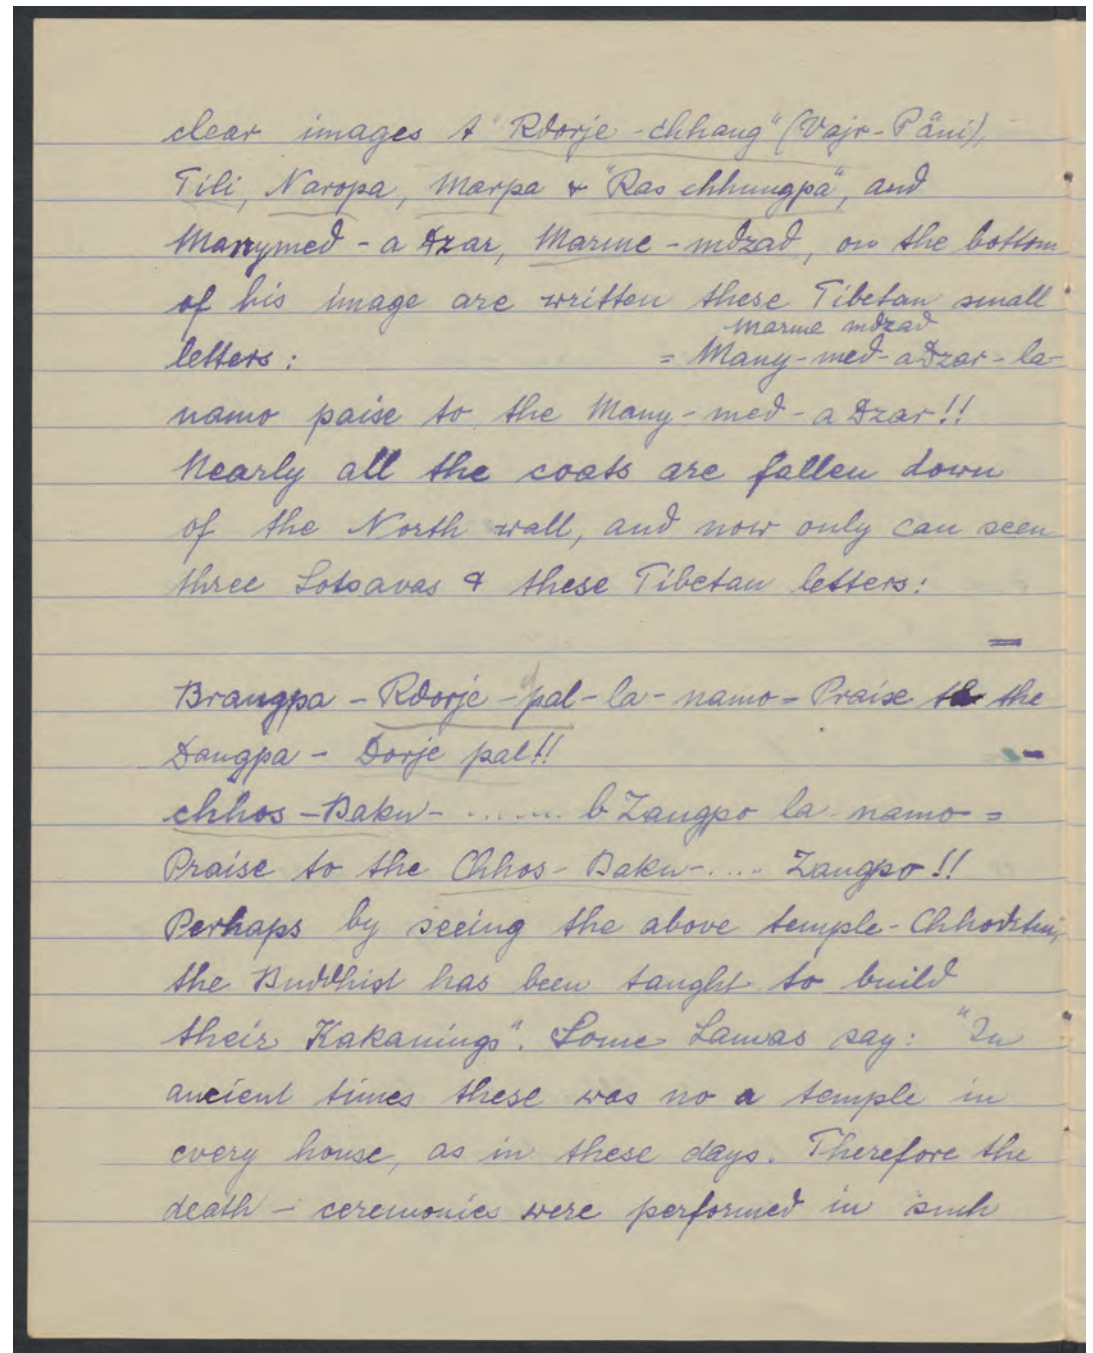 clear images & "Rdorje-chhang" (Vajr-Päni),
Tili, Naropa, Marpa & "Ras chhungpa", and
Manymed-a Dzar, Marme-mdzad, on the bottom
of his image are written these Tibetan small
marme mdzad
letters: = Many-med-a Dzar-la-
namo paise to the Many-med-a Dzar!!
Nearly all the coats are fallen down
of the North wall, and now only can seen
three Lotsavas & these Tibetan letters:
Brangpa-Rdorje-pal-la-namo-Praise to the
Dangpa-Dorje pal!!
chhos-Baku-...... b Zangpo la namo=
Praise to the Chhos-Baku-.... Zangpo!!
Perhaps by seeing the above temple-Chhodsten,
the Buddhist has been taught to build
their Kakanings". Some Lamas say: "In
ancient times these was no a temple in
every house, as in these days. Therefore the
death-ceremonies were performed in such